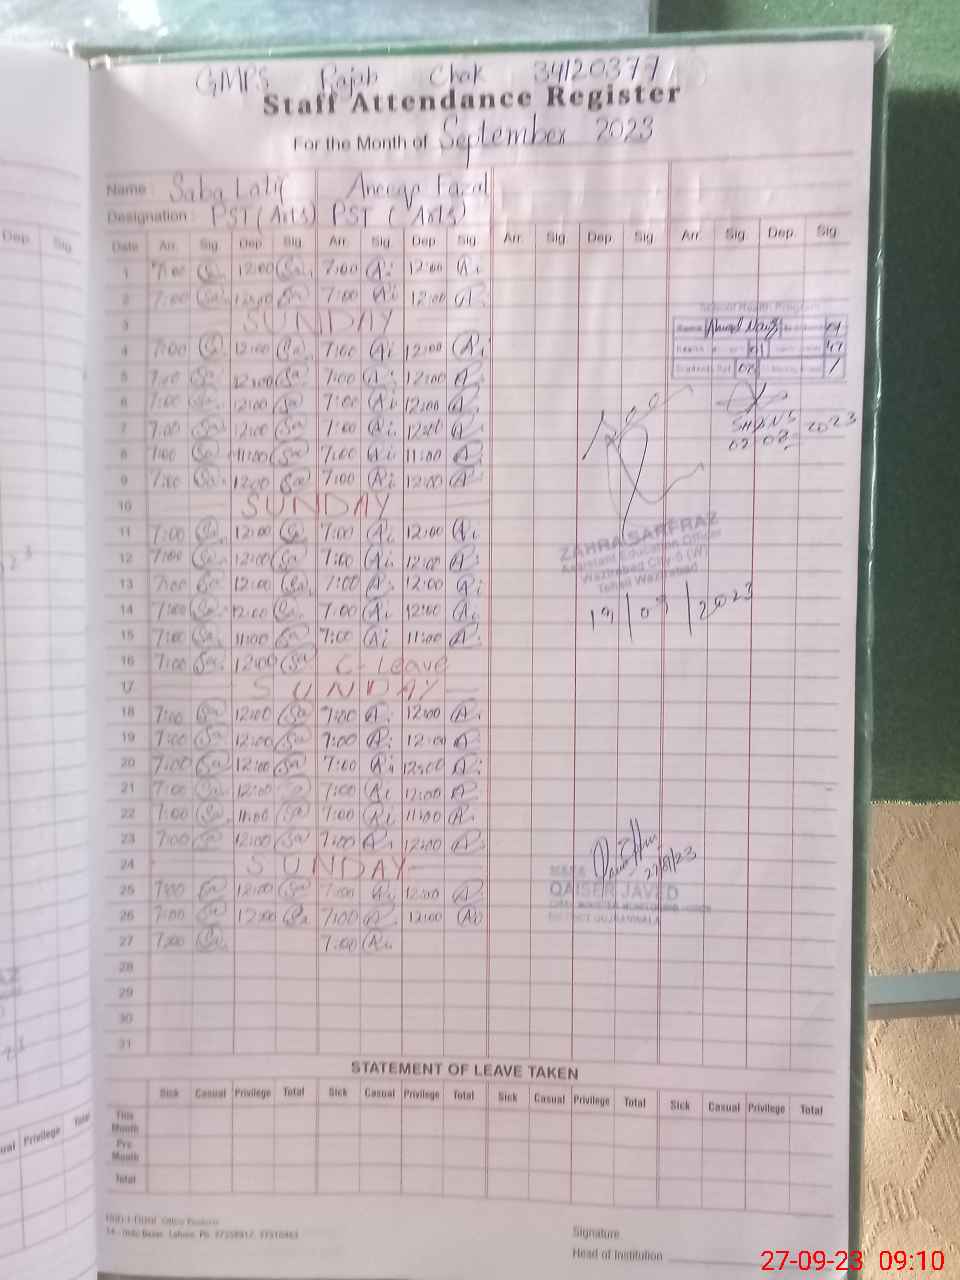 GMPS Rajab Chak 34120377
Staff Attendance Register
For the Month of September 2023
Name Saba Latif Aneeqa Fazal
Designation PST (Arts) PST (Arts)
Dep. Sig.
Date Arr. Sig. Dep Sig. Arr. Sig. Dep Sig. Arr. Sig. Dep Sig. Arr. Sig. Dep. Sig.
1 7:00 Sa. 12:00 Sa. 7:00 Ai 12:00 Ai
2 7:00 Sa. 12:00 Sa 7:00 Ai 12:00 A.
3 SUNDAY
4 7:00 Sa. 12:00 Sa. 7:00 Ai 12:00 A.
5 7:00 Sa. 12:00 Sa. 7:00 A. 12:00 A.
6 7:00 Sa. 12:00 Sa 7:00 Ai 12:00 A.
7 7:00 Sa. 12:00 Sa 7:00 Ai 12:00 A.
SHNS 2023
02 02
8 7:00 Sa. 11:00 Sa 7:00 Ai 11:00 A.
9 7:00 Sa. 12:00 Sa 7:00 Ai 12:00 A.
10 SUNDAY
11 7:00 Sa. 12:00 Sa 7:00 Ai 12:00 Ai
ZAHRA SARFRAZ
Assistant Education Officer
Wazirabad City-II (W)
Tehsil Wazirabad
12 7:00 Sa. 12:00 Sa 7:00 Ai 12:00 A.
13 7:00 Sa 12:00 Sa. 7:00 A. 12:00 Ai
14 7:00 Sa. 12:00 Sa. 7:00 Ai 12:00 Ai
19/09/2023
15 7:00 Sa. 11:00 Sa 7:00 Ai 11:00 A.
16 7:00 Sa. 12:00 Sa C-Leave
17 SUNDAY
18 7:00 Sa 12:00 Sa 7:00 A. 12:00 A.
19 7:00 Sa 12:00 Sa 7:00 A. 12:00 A.
20 7:00 Sa 12:00 Sa 7:00 Ai 12:00 A.
21 7:00 Sa. 12:00 7:00 Ai 12:00 A.
22 7:00 Sa. 11:00 Sa 7:00 Ai 11:00 A.
23 7:00 Sa 12:00 Sa 7:00 A. 12:00 A.
24 SUNDAY
27/9/23
QAISER JAVED
25 7:00 Sa 12:00 Sa 7:00 Ai 12:00 A.
26 7:00 Sa 12:00 Sa 7:00 A. 12:00 Ai
27 7:00 Sa. 7:00 Ai
28
29
30
31
STATEMENT OF LEAVE TAKEN
Sick Casual Privilege Total Sick Casual Privilege Total Sick Casual Privilege Total Sick Casual Privilege Total
This Month
Pre. Month
Total
Privilege Total
Signature
Head of Institution
27-09-23 09:10